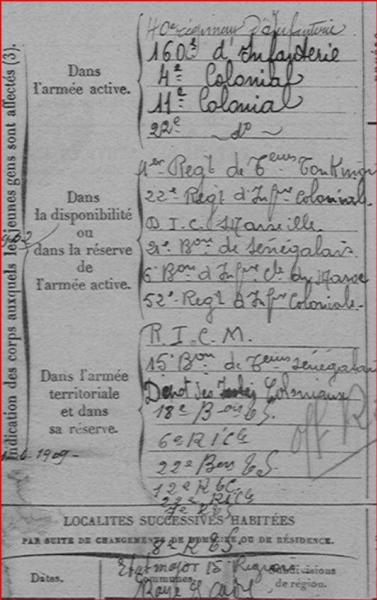 Indication des corps auxquels les jeunes gens sont affectés (3).
Dans
l'armée active.
40e régiment d'Infanterie
160e d'Infanterie
4e Colonial
11e Colonial
22e — do —
Dans
la disponibilité
ou
dans la réserve
de
l'armée active.
1er Regt de Teurs Tonkinois
22e Regt d'Infrie Coloniale
D.I.C. Marseille.
2e Bon de Sénégalais
6e Bon d'Infrie Cle du Maroc
52e Regt d'Infrie Coloniale.
Dans l'armée
territoriale
et dans
sa réserve.
R.I.C.M.
15e Bon de Teurs Sénégalais
Dépôt des Coloniaux
18e Bon T.S.
6e RICM
22e Bon T.S.
12e
22e RIC
7e RTS
LOCALITÉS SUCCESSIVES HABITÉES
PAR SUITE DE CHANGEMENTS DE DOMICILE OU DE RÉSIDENCE.
8e RTS
Dates.
Communes.
Subdivisions
de région.
Etat major 15 Région